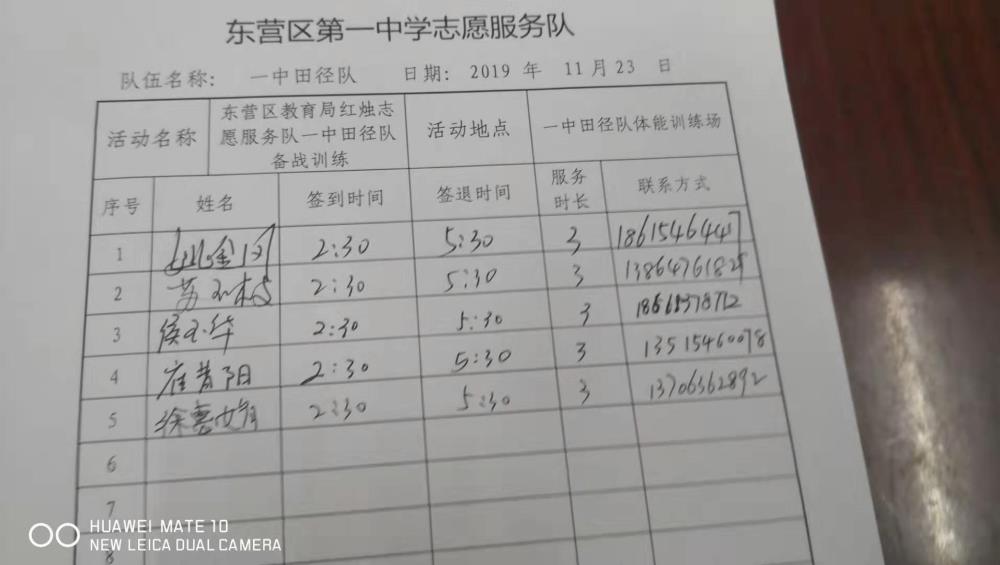 东营区第一中学志愿服务队
队伍名称： 一中田径队 日期：2019 年 11月23 日
活动名称 东营区教育局红烛志愿服务队一中田径队备战训练 活动地点 一中田径队体能训练场
序号 姓名 签到时间 签退时间 服务时长 联系方式
1 2:30 5:30 3
2 2:30 5:30 3
3 侯玉华 2:30 5:30 3
4 崔昔阳 2:30 5:30 3 13515460078
5 2:30 5:30 3 13706362892
6
7
8
HUAWEI MATE 10
NEW LEICA DUAL CAMERA